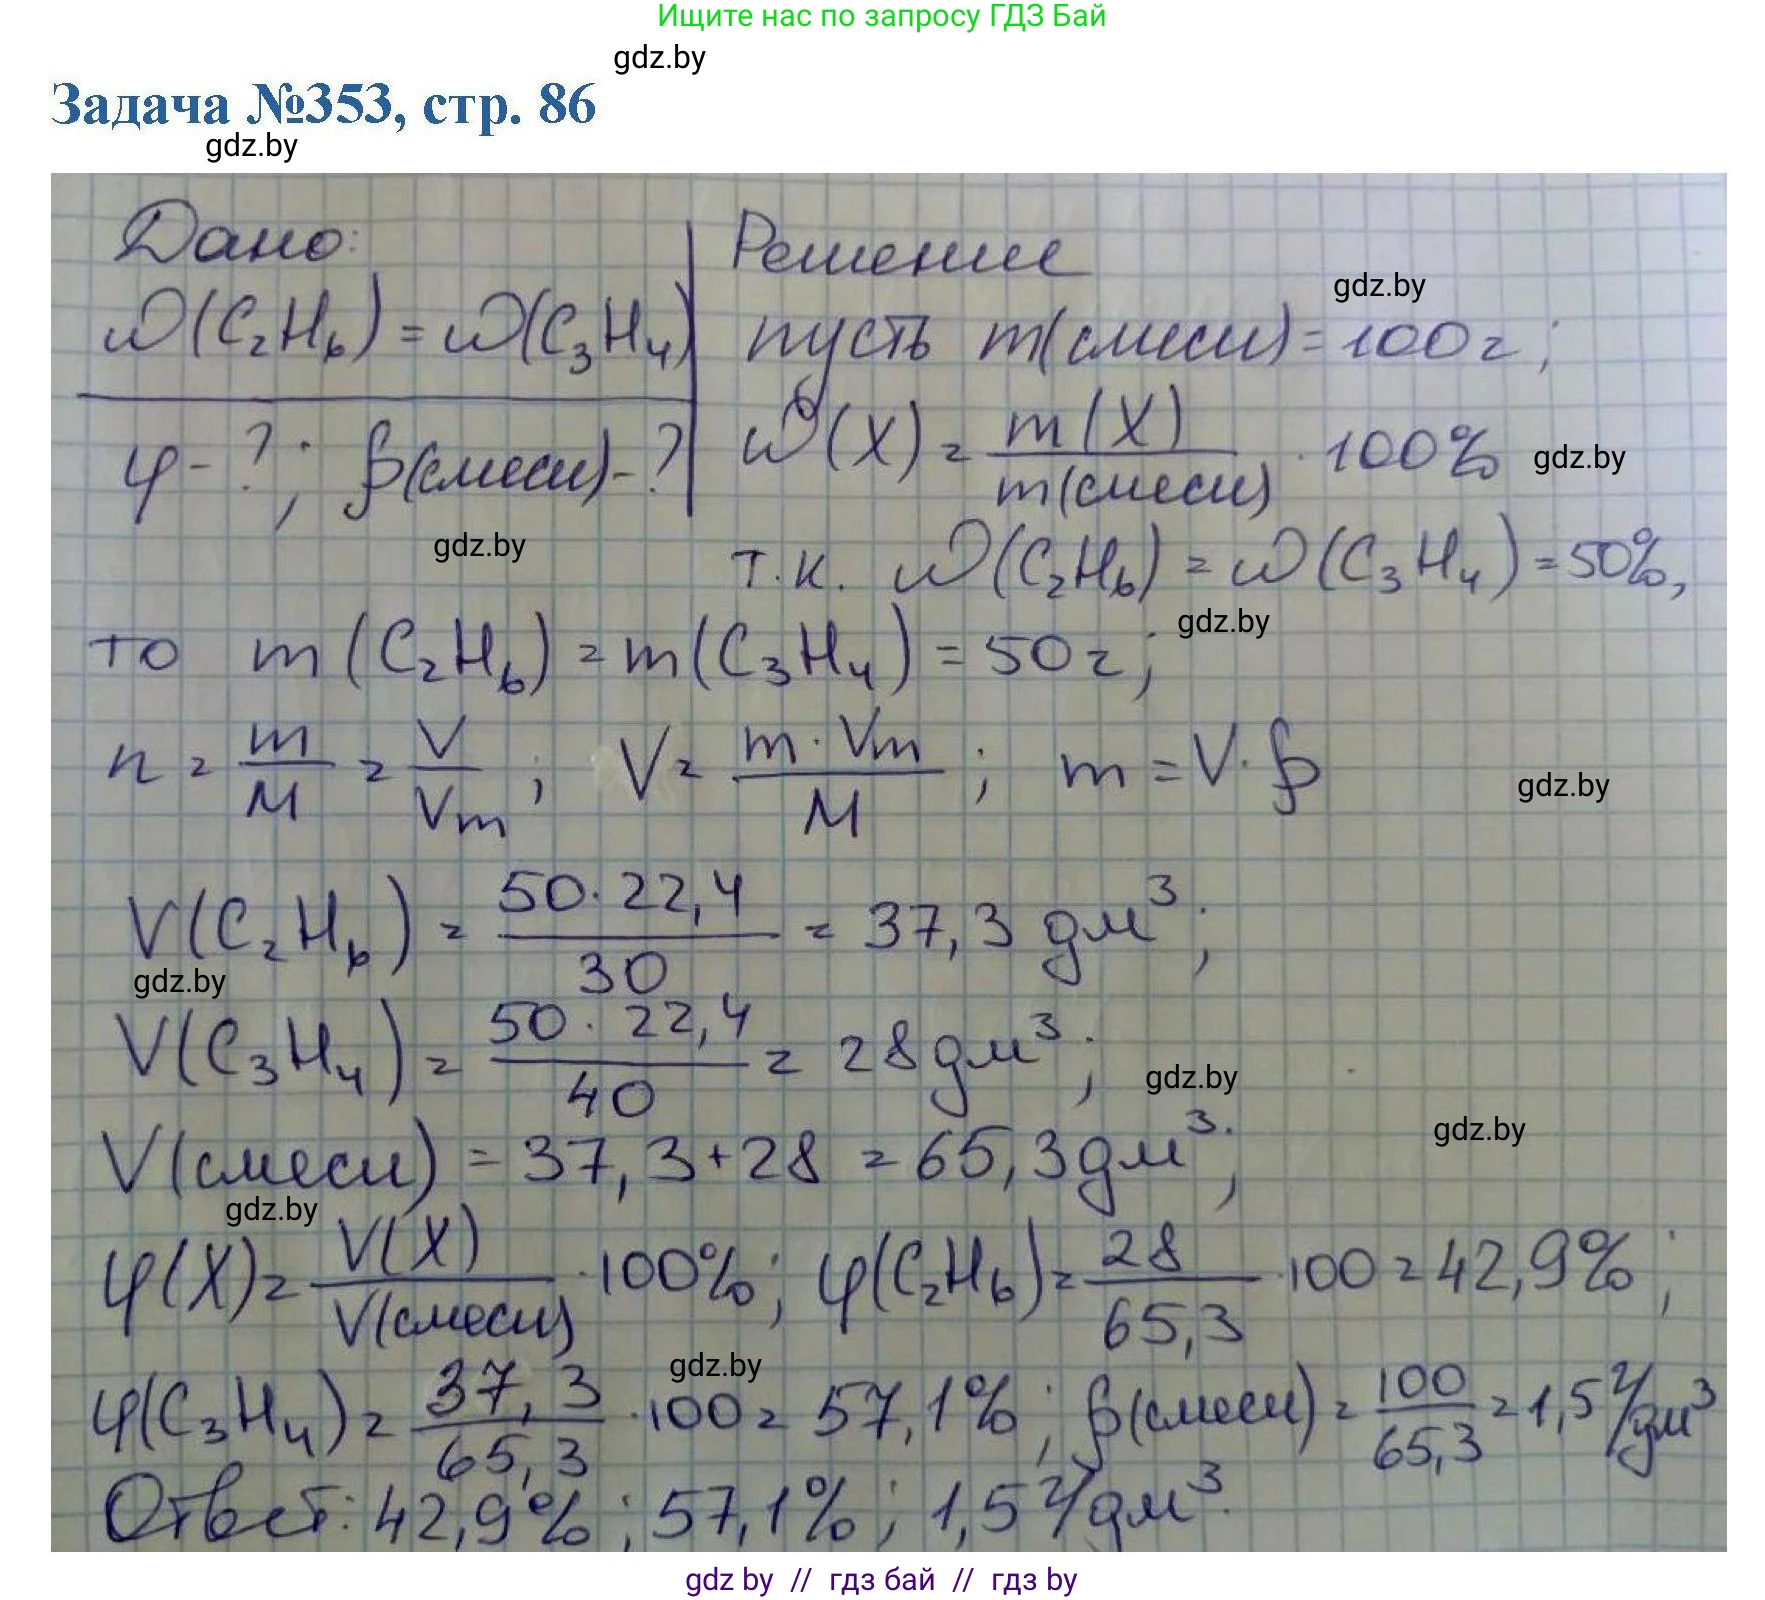 Ищите нас по запросу ГДЗ Бай
gdz.by
Задача №353, стр. 86
gdz.by
Дано:
Решение
gdz.by
ω(C₂H₆) = ω(C₃H₄)
пусть m(смеси) = 100 г;
φ - ?; ρ(смеси) - ?
ω(X) = m(X) / m(смеси) · 100%
gdz.by
gdz.by
т.к. ω(C₂H₆) = ω(C₃H₄) = 50%,
gdz.by
то m(C₂H₆) = m(C₃H₄) = 50 г;
n = m / M = V / Vm ; V = m · Vm / M ; m = V · ρ
gdz.by
V(C₂H₆) = 50 · 22,4 / 30 = 37,3 дм³;
gdz.by
V(C₃H₄) = 50 · 22,4 / 40 = 28 дм³;
gdz.by
gdz.by
V(смеси) = 37,3 + 28 = 65,3 дм³;
gdz.by
φ(X) = V(X) / V(смеси) · 100%; φ(C₂H₆) = 28 / 65,3 · 100 = 42,9%;
gdz.by
φ(C₃H₄) = 37,3 / 65,3 · 100 = 57,1%; ρ(смеси) = 100 / 65,3 = 1,5 г/дм³
Ответ: 42,9%; 57,1%; 1,5 г/дм³.
gdz by // гдз бай // гдз by